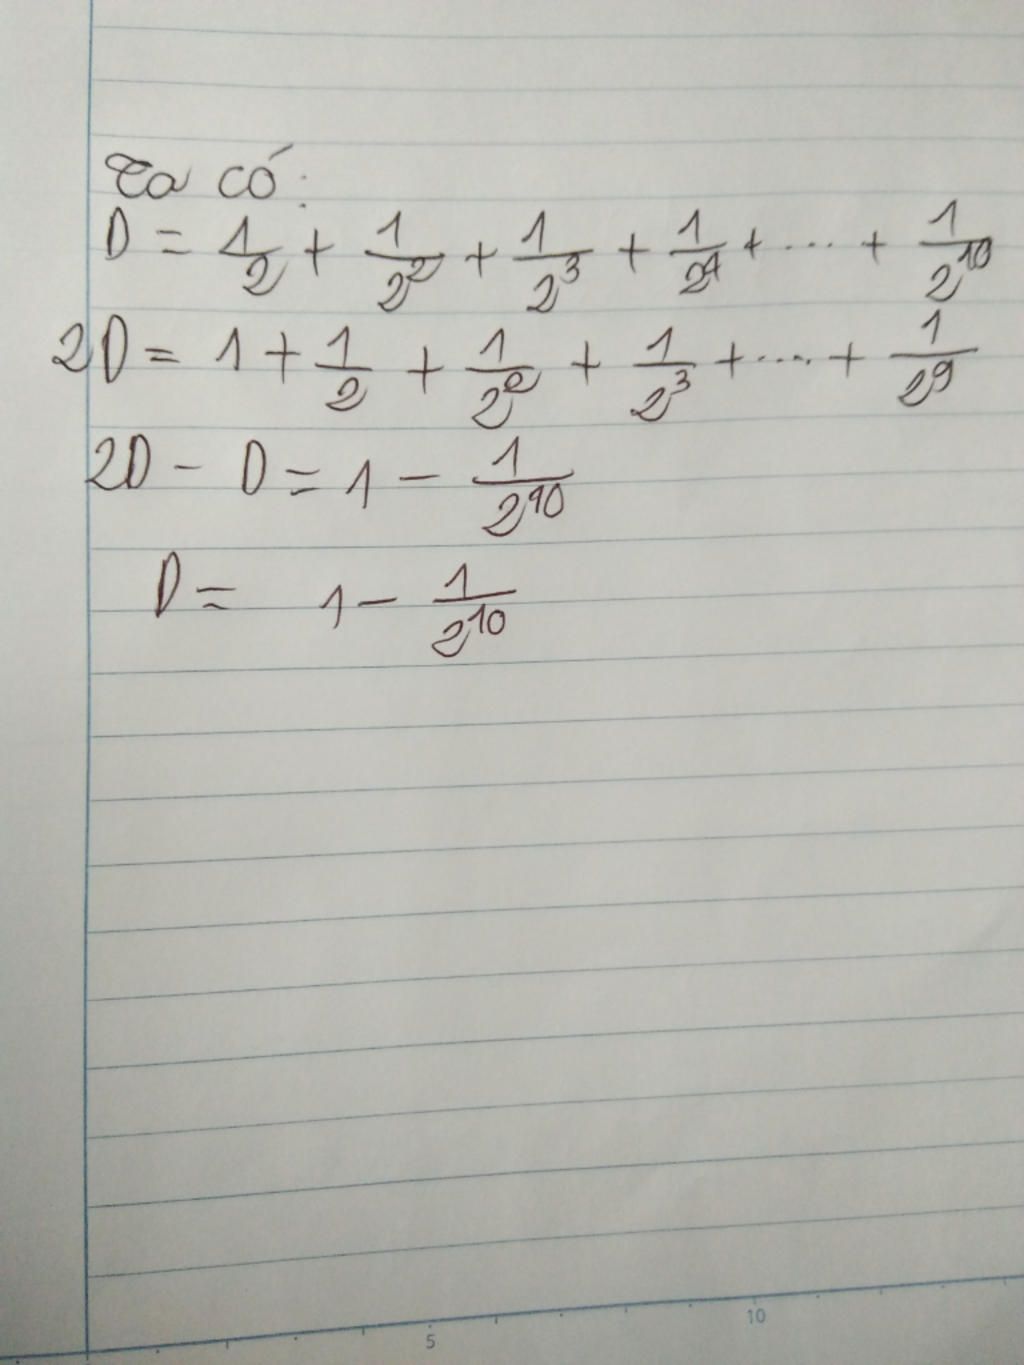 Ta có:
D = 1/2 + 1/2² + 1/2³ + 1/2⁴ + .... + 1/2¹⁰
2D = 1 + 1/2 + 1/2² + 1/2³ + .... + 1/2⁹
2D - D = 1 - 1/2¹⁰
D = 1 - 1/2¹⁰
5 10